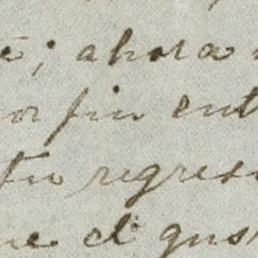 ; ahora
or fin ent
tu regres
ue el gus